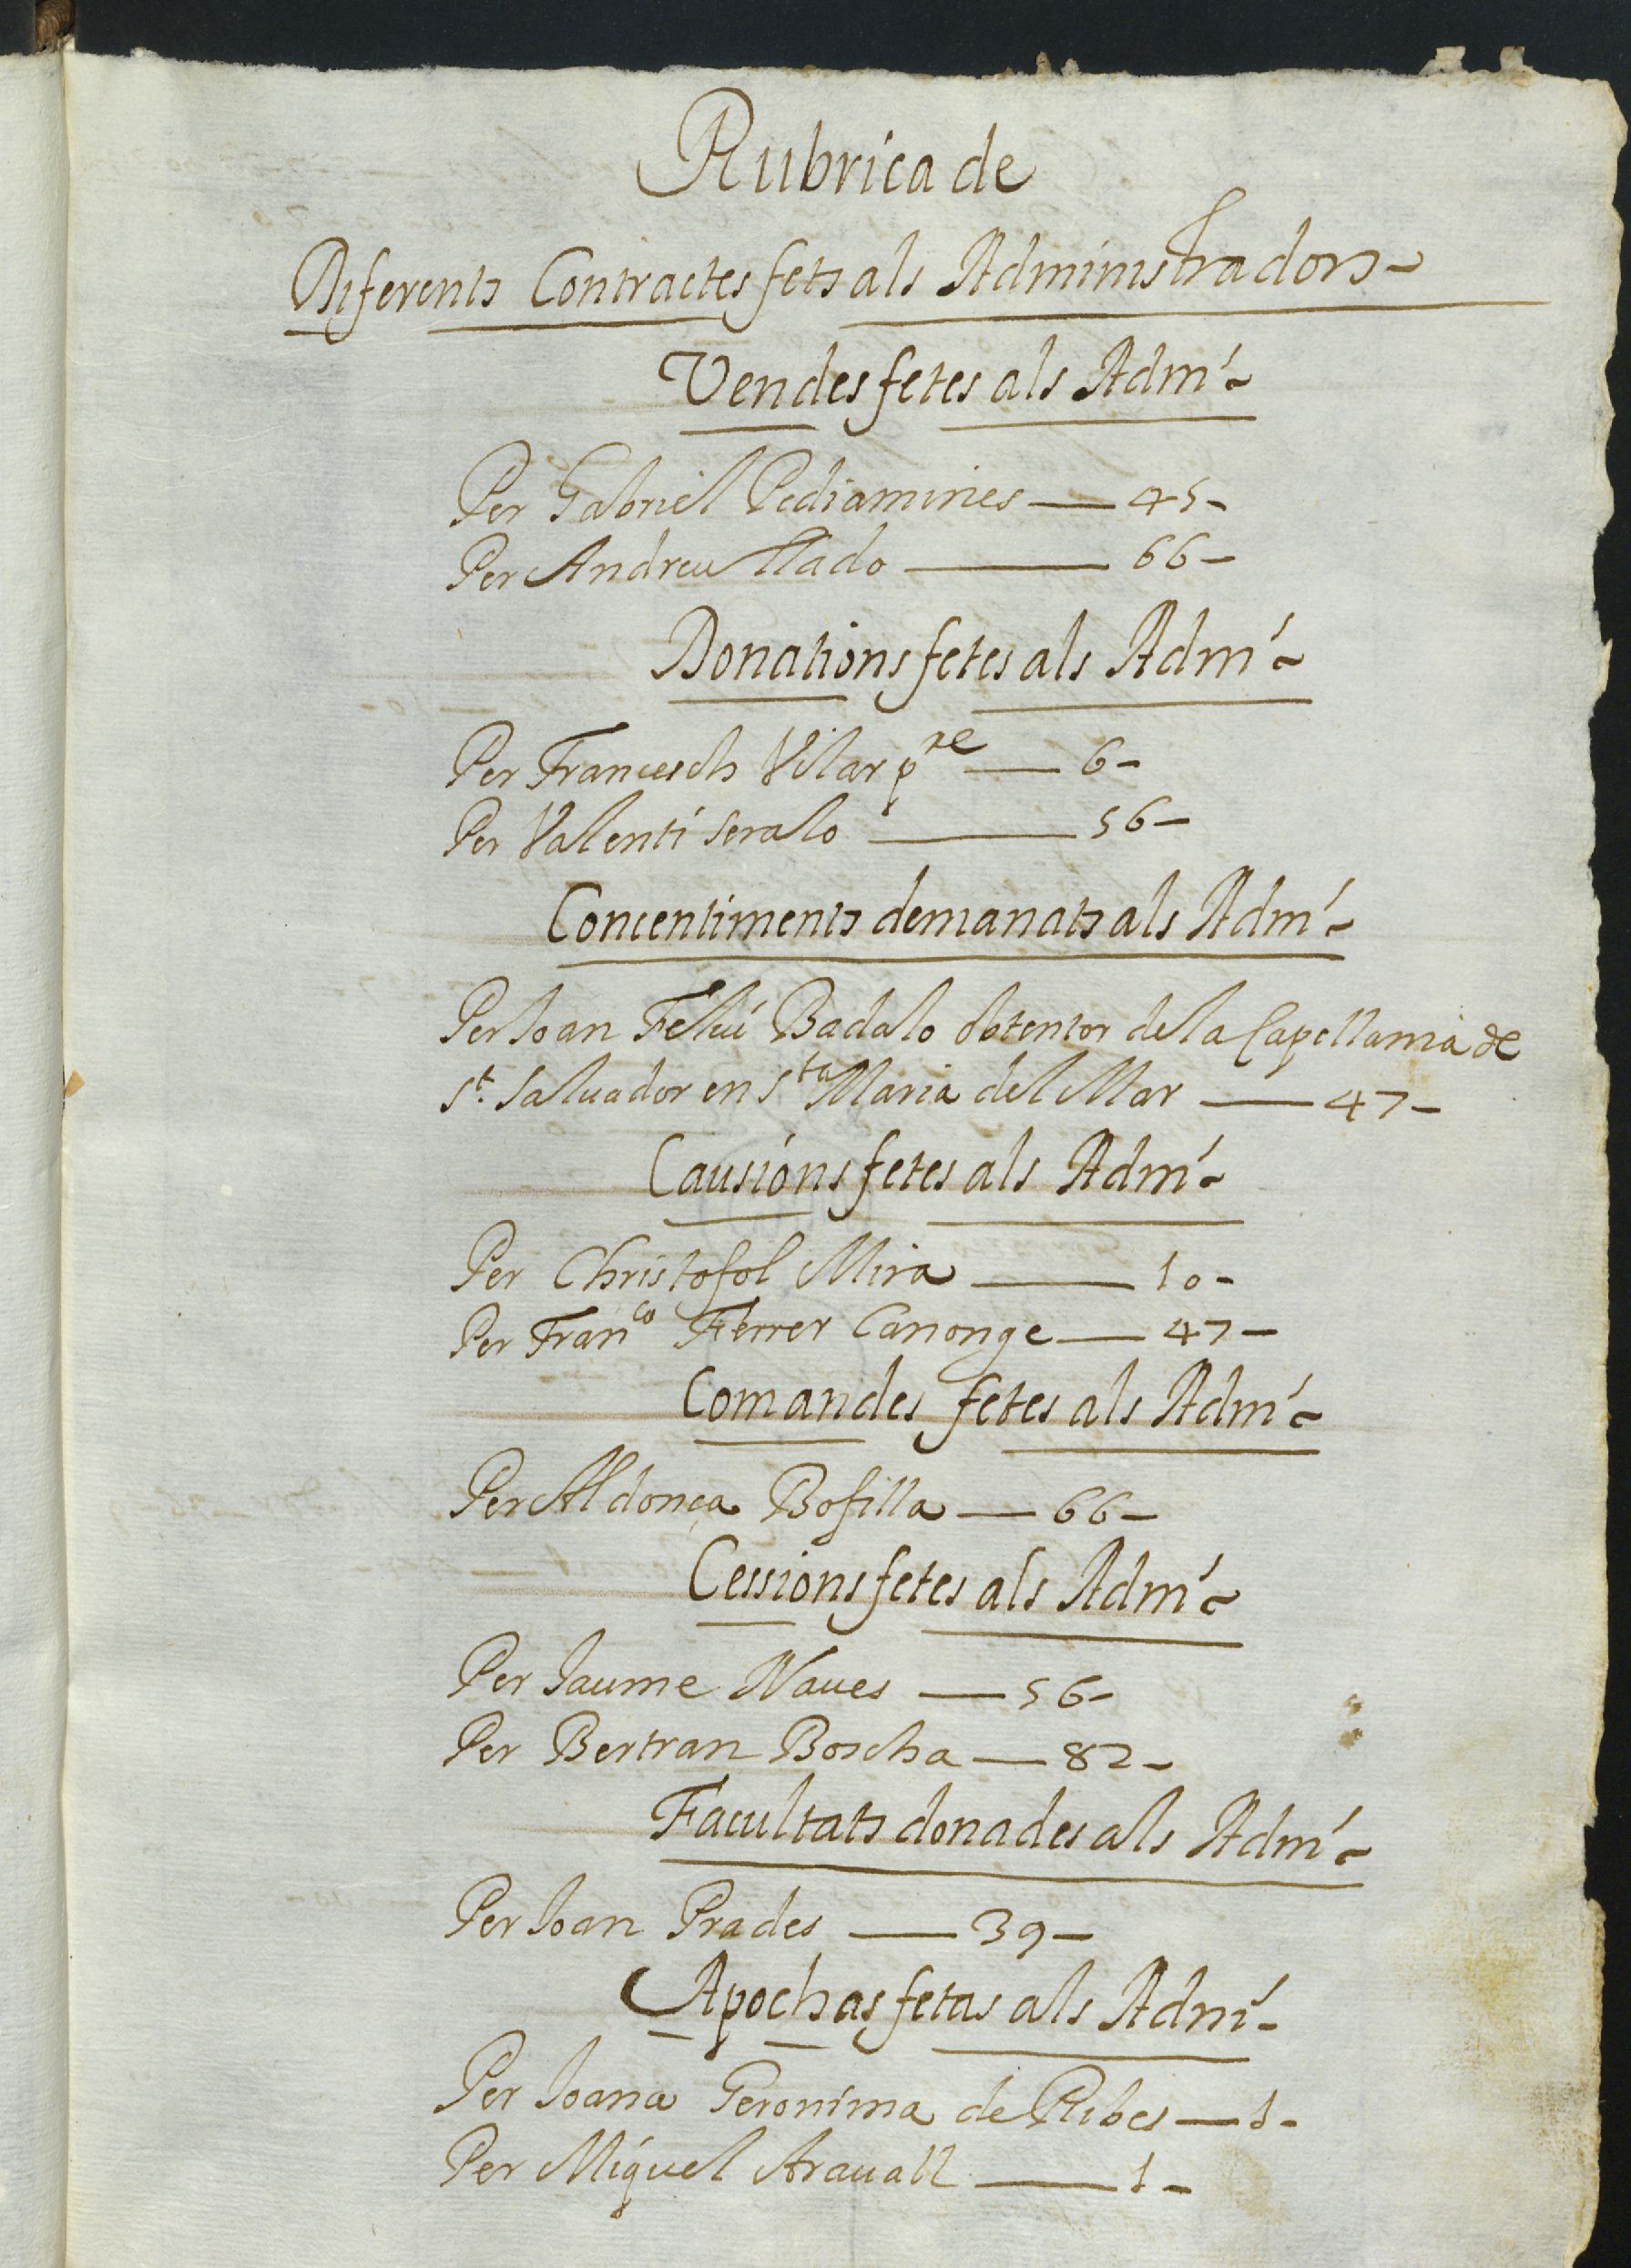 Rubrica de
Diferents Contractes fets als Administradors
Vendes fetes als Adm.
Per Gabriel Pediamines — 45-
Per Andreu Llado — 66-
Donations fetes als Adm.
Per Francesch Vilar pre — 6-
Per Valentí Seralo — 56-
Concentiments demanats als Adm.
Per Joan Feliú Badalo obtentor de la Capellania de
St. Salvador en Sta Maria del Mar — 47-
Causións fetes als Adm.
Per Christofol Mira — 10-
Per Franco Ferrer Canonge — 47-
Comandes fetes als Adm.
Per Aldonça Bofilla — 66-
Cessions fetes als Adm.
Per Jaume Naues — 56-
Per Bertran Boscha — 82-
Facultats donades als Adm.
Per Joan Prades — 39-
Apochas fetas als Adm.
Per Joana Geronima de Ribes — 1-
Per Miquel Arauall — 1-